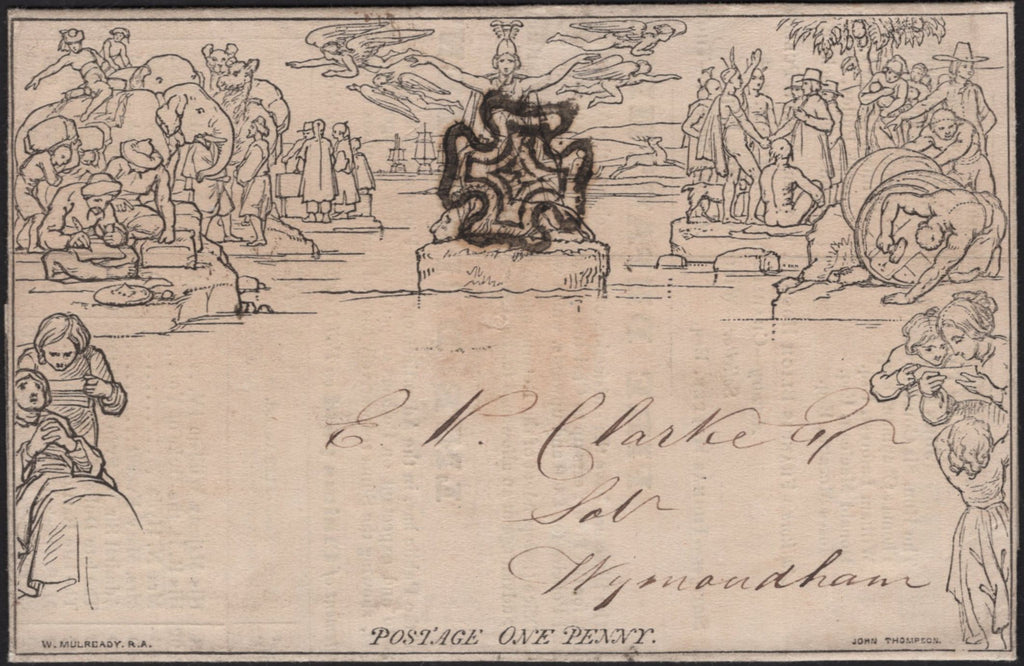 E. P. Clarke Esqr
Solr
Wymondham
POSTAGE ONE PENNY.
W. MULREADY. R.A.
JOHN THOMPSON.